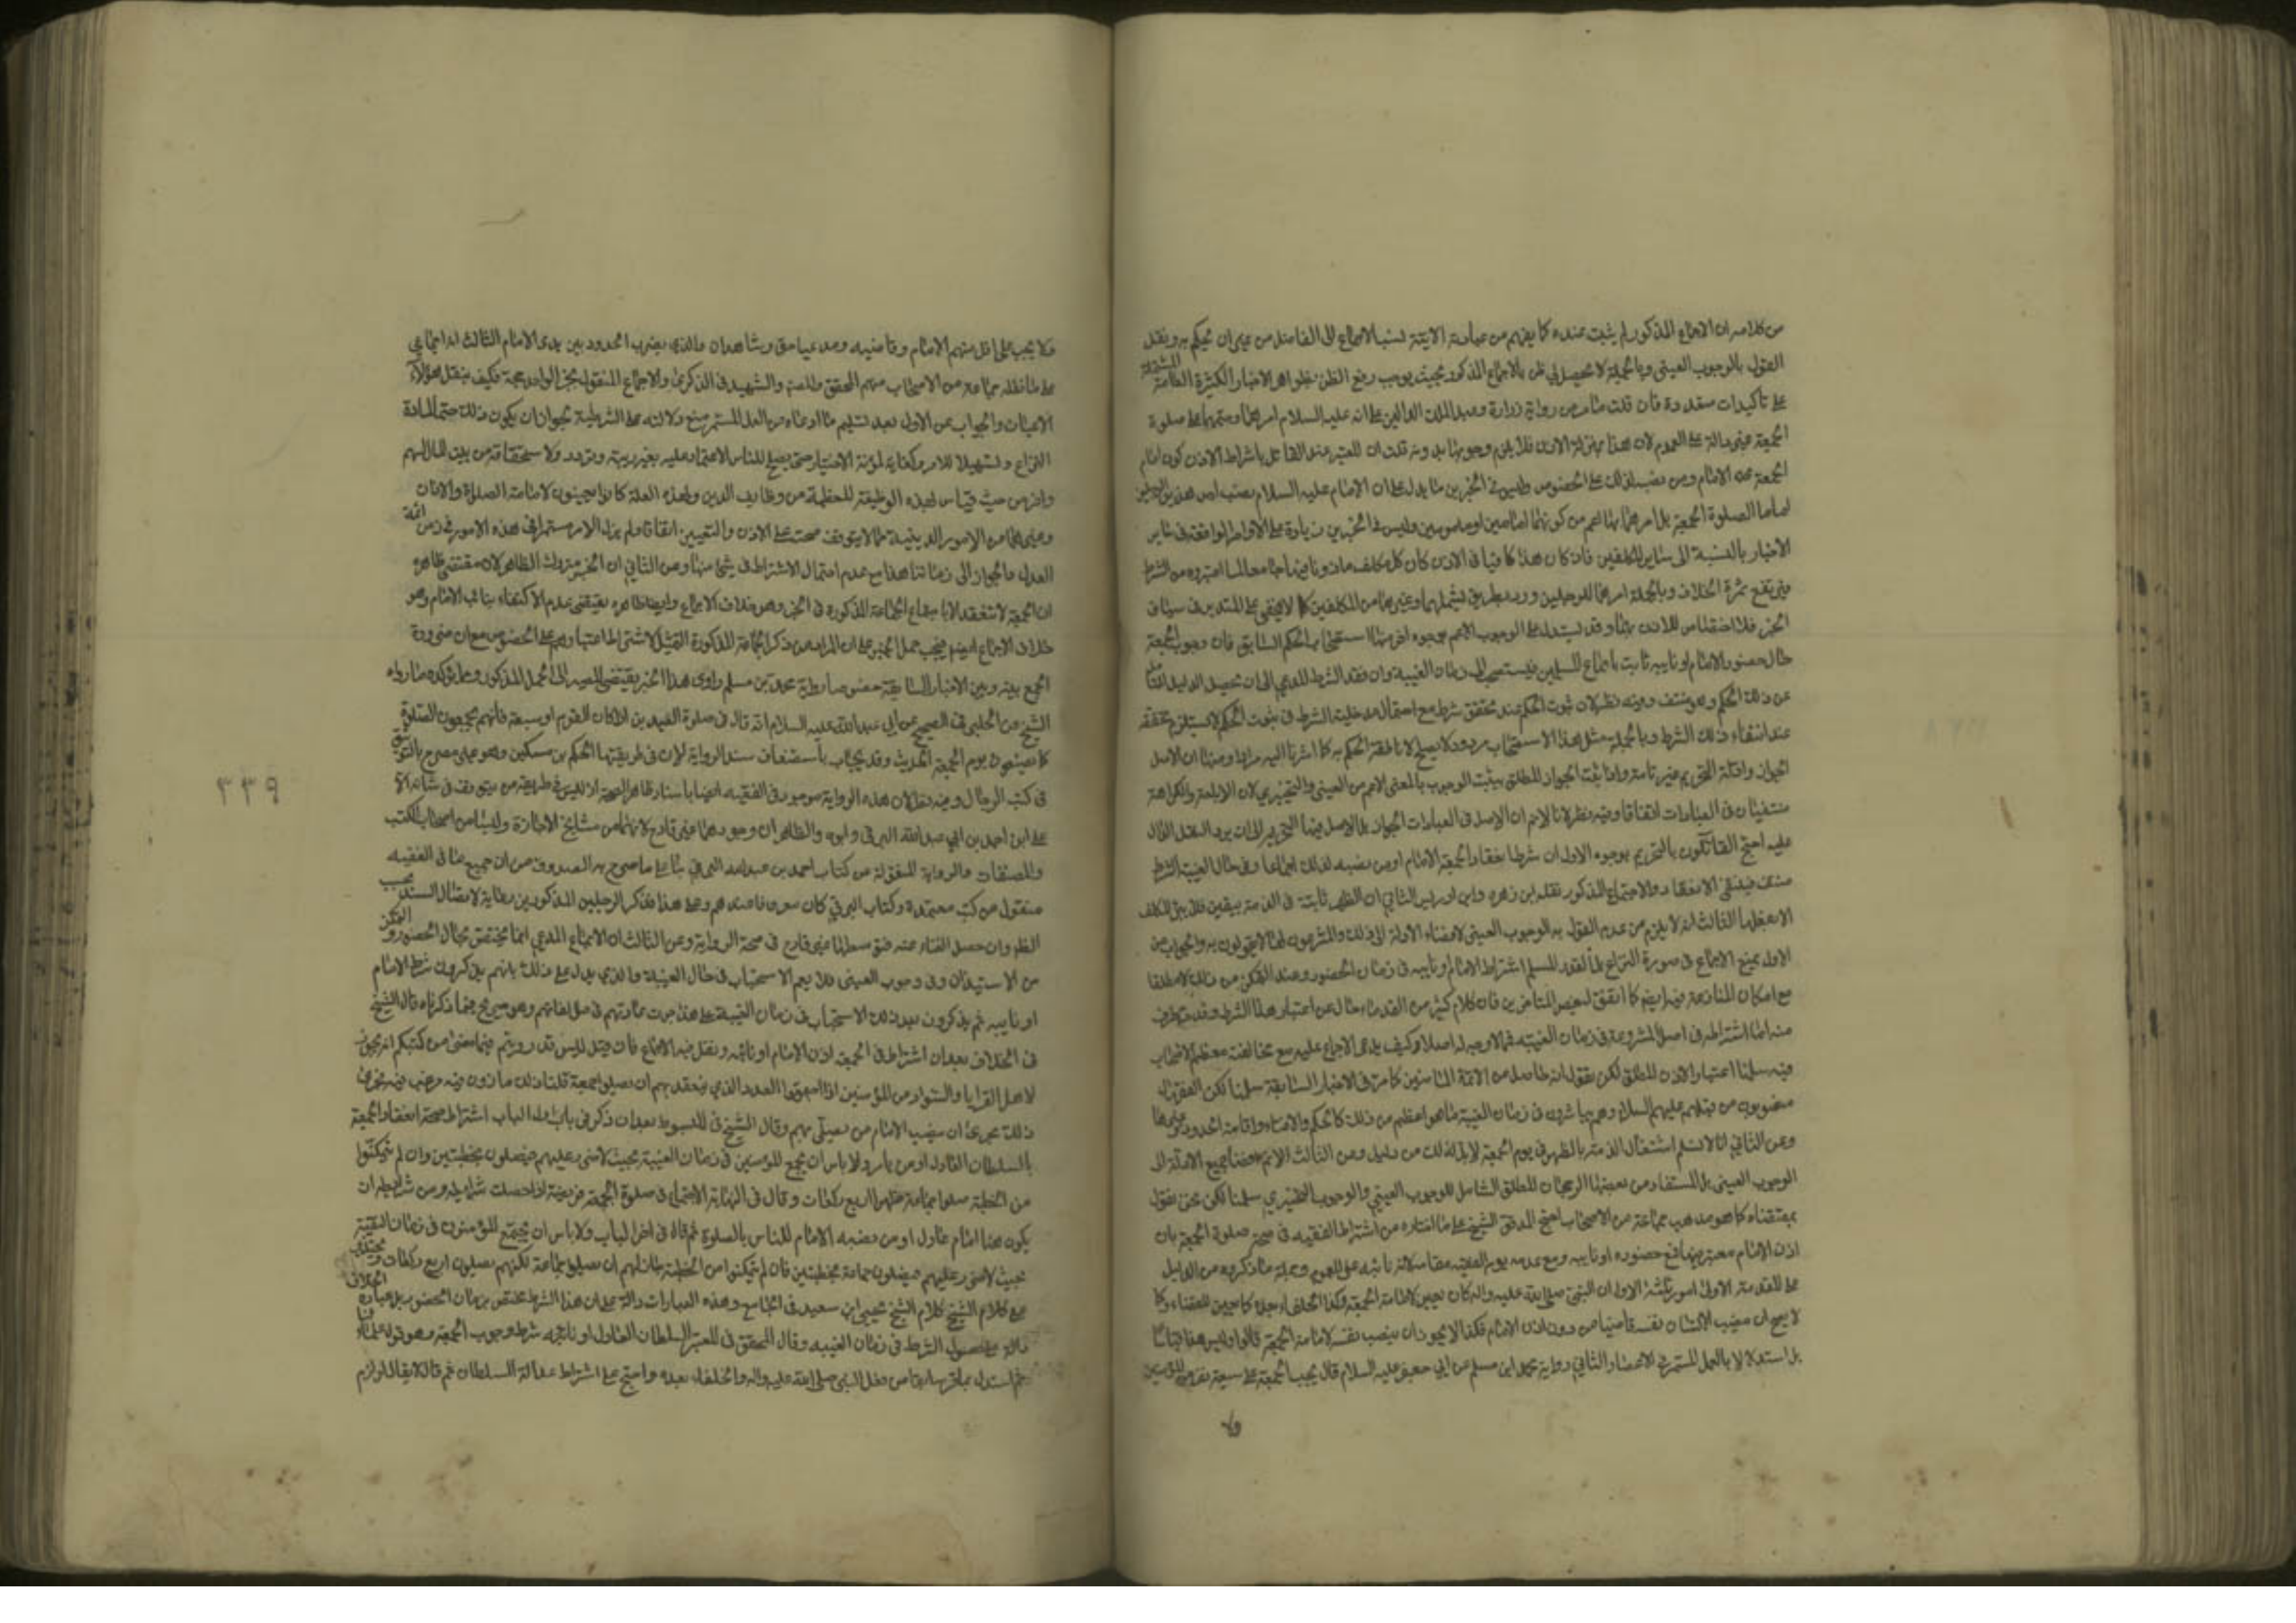 من كلامه ان الاجماع المذكور لم يثبت عنده كما يفهم من عبارته الاتية لنسب الاجماع الى الفاضل من غير ان يحكم به ونقل
القول بالوجوب العيني وبالجملة لا يحصل لي ظن بالاجماع المذكور بحيث يوجب رفع الظن بظواهر الاخبار الكثيرة العامة المشتملة
على تاكيدات متعددة فان قلت ما مر من رواية زرارة وعبد الملك الدالين على انه عليه السلام امرهما وحثهما على صلوة
الجمعة غير دالة على العموم لان هذا بمنزلة الاذن فلا يلزم وجوبها بدونه قلت ان المعتبر عند القائل باشتراط الاذن كون امام
الجمعة هو الامام ومن نصبه لذلك على الخصوص وليس في الخبرين ما يدل على ان الامام عليه السلام نصب احد هذين الرجلين
اماما لصلوة الجمعة بل امرهما بها اعم من كونهما امامين او مامومين وليس في الخبرين زيادة على الاوامر الواقعة في سائر
الاخبار بالنسبة الى سائر المكلفين فان كان هذا كافيا في الاذن كان كل مكلف ماذونا فيها جامعا لما اعتبروه من الشرط
فيرتفع ثمرة الخلاف وبالجملة امرهما للرجلين ورد بطريق يشملهما وغيرهما من المكلفين كما لا يخفى على المتدبر في سياق
الخبر فلا اختصاص للاذن بهما وقد يستدل على الوجوب الاعم بوجوه اخر منها استصحاب الحكم السابق فان وجوب الجمعة
حال حضور الامام او نايبه ثابت باجماع المسلمين فيستصحب الى زمان الغيبة وان فقد الشرط المدعى الى ان يحصل الدليل الناقل
عن ذلك الحكم وهو منتف وفيه نظر لان ثبوت الحكم عند تحقق شرط مع احتمال مدخلية الشرط في ثبوت الحكم لا يستلزم تحققه
عند انتفاء ذلك الشرط وبالجملة مثل هذا الاستصحاب مردود لا يصلح لاناطة الحكم به كما اشرنا اليه مرارا ومنها ان الاصل
الجواز وادلة التحريم غير تامة واذا ثبت الجواز المطلق يثبت الوجوب بالمعنى الاعم من العيني والتخييري لان الاباحة والكراهة
منتفيتان في العبادات اتفاقا وفيه نظر لانا لا نم ان الاصل في العبادات الجواز بل الاصل فيها التحريم الى ان يرد النقل الدال
عليه احتج القائلون بالتحريم بوجوه الاول ان شرط انعقاد الجمعة الامام او من نصبه لذلك اجماعا وفي حال الغيبة الشرط
منتف فينتفي الانعقاد والاجماع المذكور نقله ابن زهره وابن ادريس الثاني ان الظهر ثابتة في الذمة بيقين فلا يبرئ المكلف
الا بفعلها الثالث انه لا يلزم من عدم القول به الوجوب العيني لافضاء الادلة الى ذلك والمشرعون لها لا يقولون به والجواب عن
الاول بمنع الاجماع في صورة النزاع بل القدر المسلم اشتراط الامام او نايبه في زمان الحضور وعند التمكن من ذلك لا مطلقا
مع امكان المنازعة فيه ايضا كما اتفق لبعض المتاخرين فان كلام كثير من القدماء خال عن اعتبار هذا الشرط وقد عرفت
منه اما اشتراطه في اصل المشروعية في زمان الغيبة فمما لا وجه له اصلا وكيف يدعى الاجماع عليه مع مخالفة معظم الاصحاب
فيه سلمنا اعتبار الاذن المطلق لكن نقول انه حاصل من الائمة الماضين كما مر في الاخبار السابقة سلمنا لكن الفقهاء
منصوبون من قبلهم عليهم السلام وهم يباشرون في زمان الغيبة ما هو اعظم من ذلك كالحكم والافتاء واقامة الحدود وغيرها
وعن الثاني انا لا نسلم اشتغال الذمة بالظهر في يوم الجمعة لا بد لذلك من دليل وعن الثالث لا نم افضاء جميع الادلة الى
الوجوب العيني بل المستفاد من بعضها الرجحان المطلق الشامل للوجوب العيني والوجوب التخييري سلمنا لكن نحن نقول
بمقتضاه كما هو مذهب جماعة من الاصحاب احتج المدقق الشيخ علي ما اختاره من اشتراط الفقيه في صحة صلوة الجمعة بان
اذن الامام معتبر فيها فمع حضوره او نايبه ومع عدمه يقوم الفقيه مقامه لانه نائبه على العموم وجملة ما ذكروه من الدليل
على المقدمة الاولى امور ثلثة الاول ان النبي صلى الله عليه واله كان يعين لامامة الجمعة وكذا الخلفاء بعده كما يعين للقضاء وكما
لا يصح ان ينصب الانسان نفسه قاضيا من دون اذن الامام فكذا لا يجوز ان ينصب نفسه لامامة الجمعة قالوا وليس هذا قياسا
بل استدلالا بالعمل المستمر في الاعصار الثاني رواية محمد ابن مسلم عن ابي جعفر عليه السلام قال يجب الجمعة على سبعة نفر من المؤمنين
ولا
ولا يجب على اقل منهم الامام وقاضيه ومدعيا حق وشاهدان والذي يضرب الحدود بين يدي الامام الثالث انه اجماعي
على ما نقله جماعة من الاصحاب منهم المحقق والعلامة والشهيد في الذكرى والاجماع المنقول بخبر الواحد حجة فكيف بنقل هؤلاء
الاعيان والجواب عن الاول بعد تسليم ما ادعاه من العمل المستمر منع دلالته على الشرطية لجواز ان يكون ذلك حتما لمادة
النزاع وتسهيلا للامر وكفاية لمؤنة الاختيار حتى يصح للناس الاعتماد عليه بغير ريبة وتردد ولاستحقاقه من بيت المال لسهم
وافر من حيث قيامه لهذه الوظيفة المعظمة من وظايف الدين ولهذه العلة كانوا يعينون لامامة الصلوة والاذان
وغيرهما من الامور الدينية مما لا يتوقف صحته على الاذن والتعيين اتفاقا ولم يزل الامر مستمرا في هذه الامور في زمن ائمة
العدل والجواز الى زماننا هذا مع عدم احتمال الاشتراط في شيء منها وعن الثاني ان الخبر متروك الظاهر لان مقتضى ظاهره
ان الجمعة لا تنعقد الا باجتماع الجماعة المذكورة في الخبر وهو خلاف الاجماع وايضا ظاهره يقتضي عدم الاكتفاء بنائب الامام وهو
خلاف الاجماع ايضا فيجب حمل الخبر على ان المراد من ذكر الجماعة المذكورة التمثيل لا اشتراط اعتبارهم على الخصوص مع ان ضرورة
الجمع بينه وبين الاخبار السابقة خصوصا رواية محمد بن مسلم راوي هذا الخبر يقتضي المصير الى الحمل المذكور ومما يؤكده ما رواه
الشيخ عن الحلبي في الصحيح عن ابي عبد الله عليه السلام انه قال في صلوة العيدين اذا كان القوم خمسة او سبعة فانهم يجمعون الصلوة
كما يصنعون يوم الجمعة الحديث وقد يجاب باستضعاف سند الرواية لان في طريقها الحكم بن مسكين وهو غير مصرح بالتوثيق
في كتب الرجال وفيه نظر لان هذه الرواية موجود في الفقيه ايضا باسناد ظاهر الصحة اذ ليس في طريقه من يتوقف في شانه الا
على ابن احمد بن ابي عبد الله البرقي وابوه والظاهر ان وجودهما غير قادح لانهما من مشايخ الاجازة وليسا من اصحاب الكتب
والمصنفات والرواية المنقولة من كتاب احمد بن عبدالله البرقي بناء على ما صرح به الصدوق من ان جميع ما في الفقيه
منقول من كتب معتمدة وكتاب البرقي كان معروفا عندهم وعلى هذا فذكر الرجلين المذكورين رعاية لاتصال السند بحسب
الظاهر وان حصل الغناء عنه فتوسطهما غير قادح في صحة الرواية وعن الثالث ان الاجماع المدعى انما يختص بحال الحضور والتمكن
من الاستيذان وفي وجوب العيني فلا يعم الاستحباب في حال الغيبة والذي يدل على ذلك بانهم يذكرون شرط الامام
او نايبه ثم يذكرون بعد ذلك الاستحباب في زمان الغيبة على هذا جرت عادتهم في مؤلفاتهم وهو صريح فيما ذكرناه قال الشيخ
في الخلاف بعد ان اشترط في الجمعة اذن الامام او نائبه ونقل فيه الاجماع فان قيل ليس قد رويتم فيما مضى من كتبكم انه يجوز
لاهل القرايا والسواد من المؤمنين اذا اجتمعوا العدد الذي ينعقد بهم ان يصلوا جمعة قلنا ذلك ماذون فيه ومرغب فيه فجرى
ذلك مجرى ان ينصب الامام من يصلي بهم وقال الشيخ في المبسوط بعد ان ذكر في باب اول الباب اشتراط صحة انعقاد الجمعة
بالسلطان العادل او من يامره ولا باس ان يجمع المؤمنين في زمان الغيبة بحيث لا ضرر عليهم فيصلون بخطبتين وان لم يتمكنوا
من الخطبة صلوا جماعة ظهرا اربع ركعات وقال في النهاية الاجتماع في صلوة الجمعة فريضة اذا حصلت شرايطه ومن شرايطه ان
يكون هنا امام عادل او من نصبه الامام للناس بالصلوة ثم قال في اخر الباب ولا باس ان يجتمع المؤمنون في زمان التقية
بحيث لا ضرر عليهم فيصلون جماعة بخطبتين فان لم يتمكنوا من الخطبة جاز لهم ان يصلوا جماعة لكنهم يصلون اربع ركعات
مع كلام الشيخ كلام الشيخ يحيى ابن سعيد في الجامع وهذه العبارات دالة على ان هذا الشرط مختص بزمان الحضور بل عبارة الخلاف
دالة على حصول الشرط في زمان الغيبه وقال المحقق في المعتبر السلطان العادل او نائبه شرط وجوب الجمعة وهو قول علمائنا
ثم استدل بما قر سابقا من فعل النبي صلى الله عليه واله والخلفاء بعده واحتج على اشتراط عدالة السلطان ثم قال لا يقال لو لزم
٣٣٩